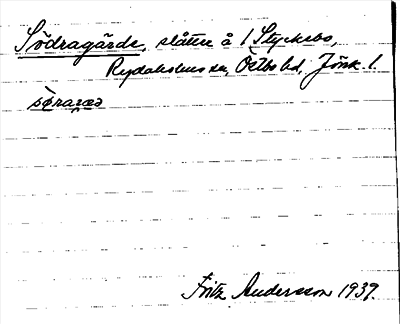 Södragärde, slåtter å 1 Styckebo,
Rydaholms sn, Östbo hd, Jönk. l.
Fritz Andersson 1939.